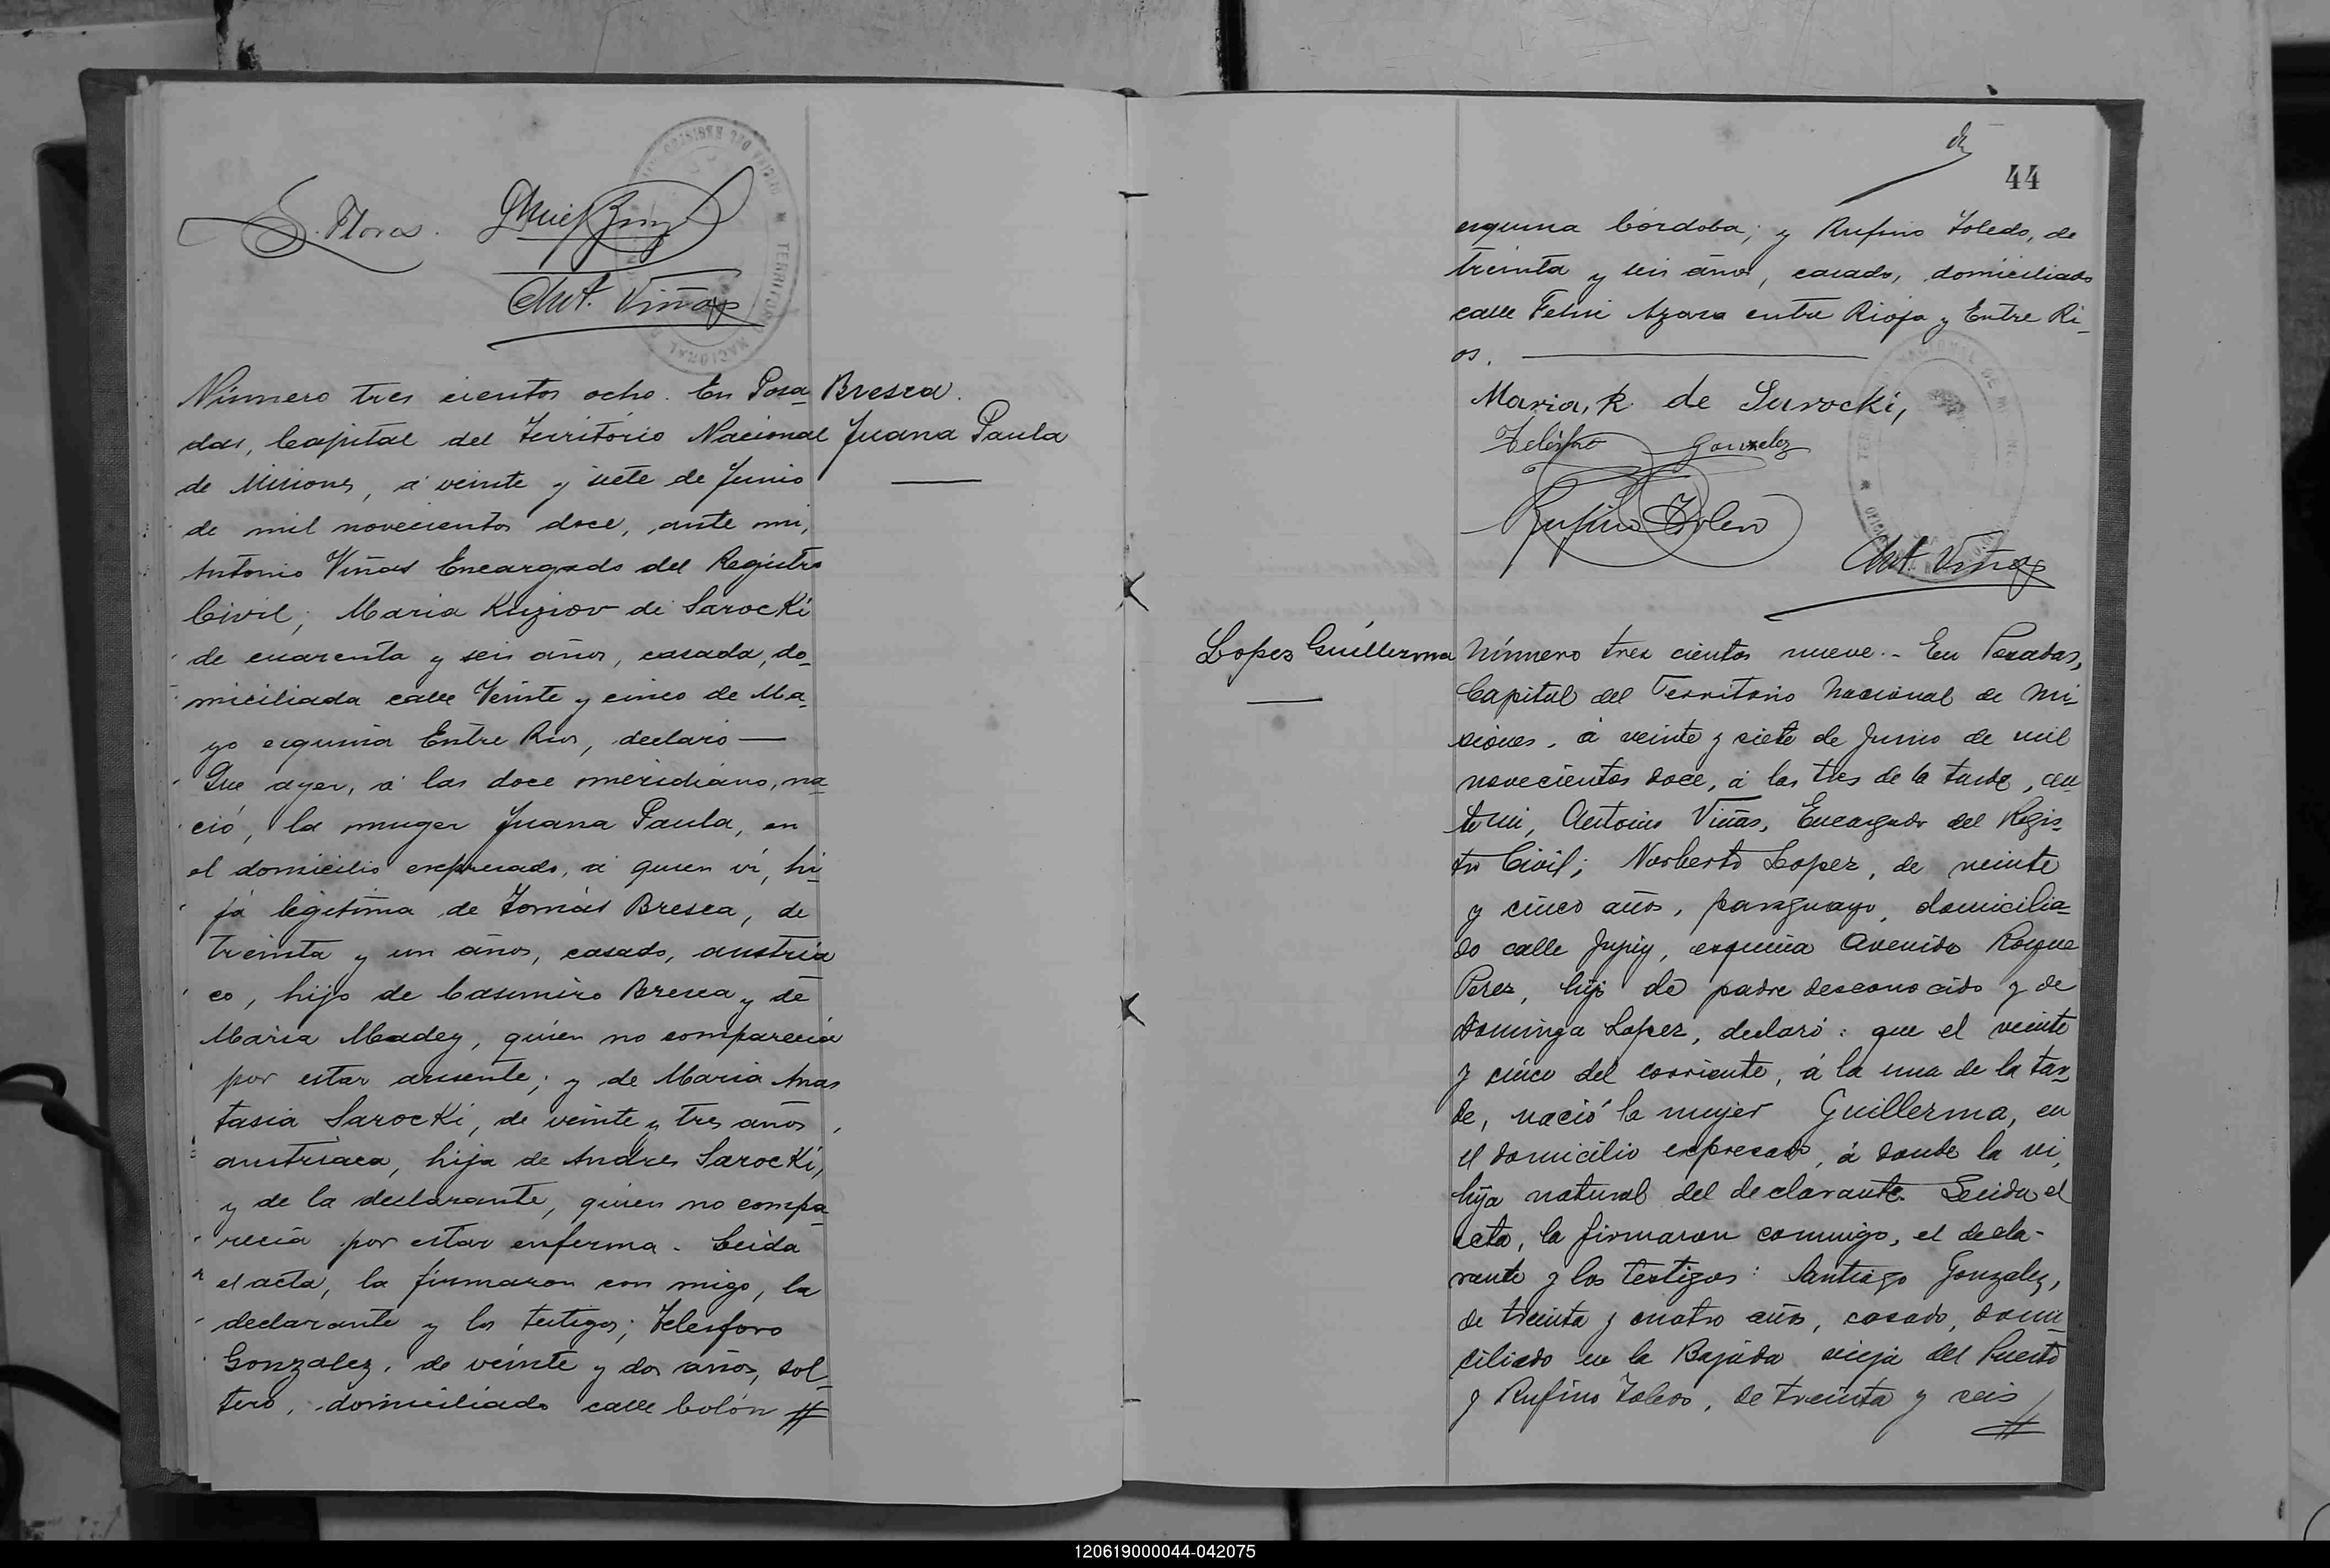 S. Flores.
Ant. Viñas
Número tres cientos ocho. En Posa-
das, Capital del Territorio Nacional
de Misiones, á veinte y siete de Junio
de mil novecientos doce, ante mi,
Antonio Viñas Encargado del Registro
Civil; Maria Kuziov de Sarocki
de cuarenta y seis años, casada, do-
miciliada calle Veinte y cinco de Ma-
yo esquina Entre Rios, declaró —
Que ayer, á las doce meridiano, na-
ció, la muger Juana Paula, en
el domicilio expresado, á quien ví, hi-
ja legitima de Tomás Bresca, de
treinta y un años, casado, austria
co, hijo de Casimiro Bresca y de
Maria Madey, quien no comparecia
por estar ausente; y de Maria Anas
tasia Sarocki, de veinte y tres años,
austriaca, hija de Andres Sarocki,
y de la declarante, quien no compa-
recia por estar enferma. Leida
el acta, la firmaron con migo, la
declarante y los testigos; Telesforo
Gonzalez, de veinte y dos años, sol-
tero, domiciliado calle Colón #
Bresca.
Juana Paula
44
esquina Córdoba; y Rufino Toledo, de
treinta y seis años, casado, domiciliado
calle Felix Azara entre Rioja y Entre Ri-
os.
Maria, K. de Sarocki,
Telésforo Gonzalez
Rufino Toledo
Ant. Viñas
Lopez Guillerma
Número tres cientos nueve.- En Posadas,
Capital del Territorio Nacional de Mi-
siones, á veinte y siete de Junio de mil
novecientos doce, á las tres de la tarde, an
te mi, Antonio Viñas, Encargado del Regis-
tro Civil; Norberto Lopez, de veinte
y cinco años, paraguayo, domicilia-
do calle Jujuy, esquina Avenida Roque
Perez, hijo de padre desconocido y de
Dominga Lopez, declaró: que el veinte
y cinco del corriente, á la una de la tar-
de, nació la mujer Guillerma, en
el domicilio expresado, á donde la vi,
hija natural del declarante. Leida el
acta, la firmaron conmigo, el decla-
rante y los testigos: Santiago Gonzalez,
de treinta y cuatro años, casado, domi-
ciliado en la Bajada vieja del Puerto
y Rufino Toledo, de treinta y seis
#
120619000044-042075